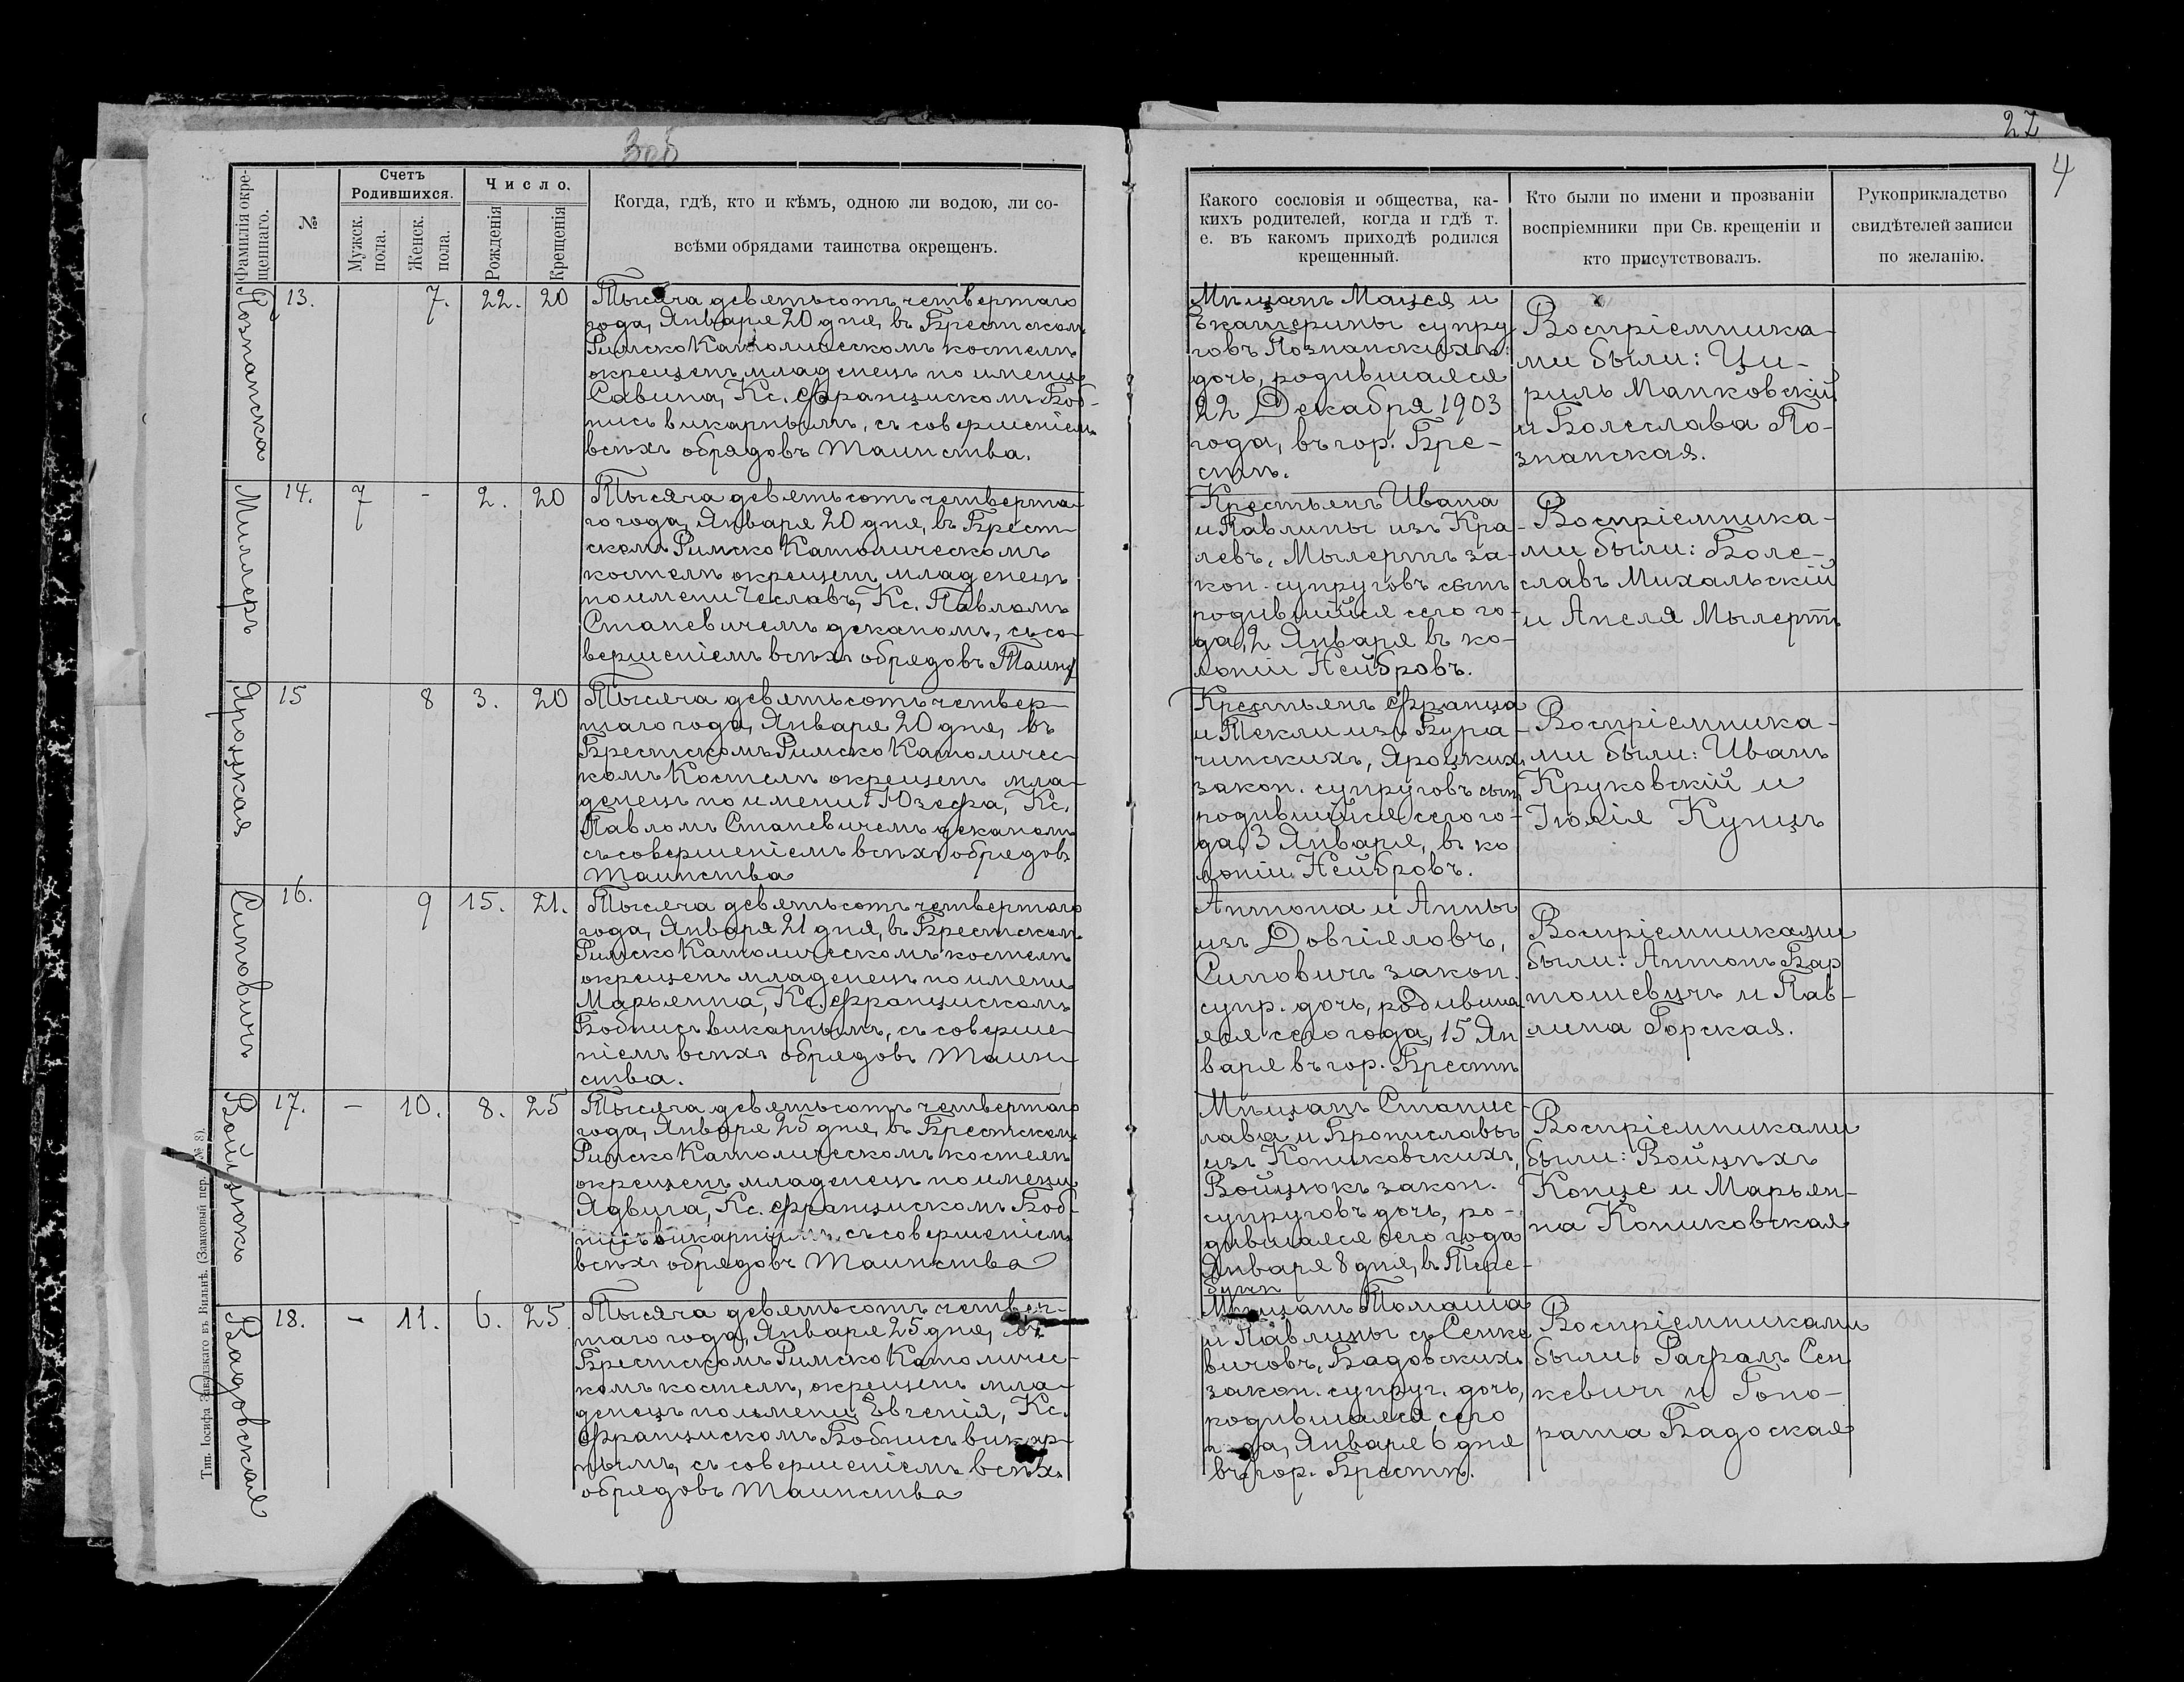 27
4
Фамилія окре-
щеннаго.
№
Счетъ
Родившихся.
Мужск.
пола.
Женск.
пола.
Число.
Рожденія
Крещенія
Когда, гдѣ, кто и кѣмъ, одною ли водою, ли со-
всѣми обрядами таинства окрещенъ.
Какого сословія и общества, ка-
кихъ родителей, когда и гдѣ т.
е. въ какомъ приходѣ родился
крещенный.
Кто были по имени и прозванію
воспріемники при Св. крещеніи и
кто присутствовалъ.
Рукоприкладство
свидѣтелей записи
по желанію.
Познанская
13.
7.
22.
20
Тысяча девятьсотъ четвертаго
года, Января 20 дня, въ Брестскомъ
Римско Католическомъ костелѣ
окрещенъ младенецъ по имени
Савина, Кс. Францискомъ Боб-
нисъ викарнымъ, съ совершеніемъ
всѣхъ обрядовъ Таинства.
Мѣщанъ Мацея и
Екатерины супру
говъ Познанскихъ
дочь, родившаяся
22 Декабря 1903
года, въ гор. Бре-
стѣ.
Воспріемника-
ми были: Ци-
риль Манковскій
и Болеслава По-
знанская.
Миллеръ
14.
7
-
2.
20
Тысяча девятьсотъ четверта-
го года, Января 20 дня, въ Брест-
скомъ Римско Католическомъ
костелѣ окрещенъ младенецъ
по имени Чеславъ, Кс. Павломъ
Станевичемъ деканомъ, съ со-
вершеніемъ всѣхъ обрядовъ Таинс
Крестьянъ Ивана
и Павлины изъ Кра-
левъ, Мылертъ за-
кон. супруговъ сынъ
родившійся сего го-
да, 2 Января въ ко-
лоніи Нейбровъ.
Воспріемника-
ми были: Боле-
славъ Михальскій
и Анеля Мылертъ
Яроцкая
15
8
3.
20
Тысяча девятьсотъ четвер-
таго года, Января 20 дня, въ
Брестскомъ Римско Католичес-
комъ Костелѣ окрещенъ мла-
денецъ по имени Юзефа, Кс.
Павломъ Станевичемъ деканомъ
съ совершеніемъ всѣхъ обрядовъ
Таинства
Крестьянъ Франца
и Текли изъ Бура-
чинскихъ, Яроцкихъ
закон. супруговъ сынъ
родившійся сего го-
да, 3 Января, въ ко
лоніи Нейбровъ.
Воспріемника-
ми были: Иванъ
Круковскій и
Юлія Кунцъ
Синовичъ
16.
9
15.
21.
Тысяча девятьсотъ четвертаго
года, Января 21 дня, въ Брестскомъ
Римско Католическомъ костелѣ
окрещенъ младенецъ по имени
Марьянна, Кс. Францискомъ
Бобнисъ викарнымъ, съ соверше-
ніемъ всѣхъ обрядовъ Таин-
ства.
Антона и Анны
изъ Довгіяловъ,
Синовичъ закон.
супр. дочь, родивша
яся сего года, 15 Ян
варя въ гор. Брестѣ
Воспріемниками
были: Антонъ Бар
тошевичъ и Пав-
лина Горская.
Войцюкъ
17.
-
10.
8.
25
Тысяча девятьсотъ четвертаго
года, Января 25 дня, въ Брестскомъ
Римско Католическомъ костелѣ
окрещенъ младенецъ по имени
Ядвига, Кс. Францискомъ Боб-
нисъ викарнымъ, съ совершеніемъ
всѣхъ обрядовъ Таинства
Мѣщанъ Станис-
лава и Брониславы
изъ Кониковскихъ,
Войцюкъ закон.
супруговъ дочь, ро-
дившаяся сего года
Января 8 дня, въ Тере-
Воспріемниками
были: Войцѣхъ
Конце и Марьян-
на Кониковская
Бадовская
18.
-
11.
6.
25.
Тысяча девятьсотъ четвер-
таго года, Января 25 дня, въ
Брестскомъ Римско Католичес-
комъ костелѣ, окрещенъ мла-
денецъ по имени Евгенія, Кс.
Францискомъ Бобнисъ викар-
нымъ, съ совершеніемъ всѣхъ
обрядовъ Таинства
Мѣщанъ Томаша
и Павлины съ Сенке
вичовъ, Бадовскихъ
закон. супруг. дочь,
родившаяся сего
года, Января 6 дня
въ гор. Брестѣ.
Воспріемниками
были: Рафалъ Сен
кевичъ и Гоно-
рата Бадоская
Тип. Іосифа Завадзкаго въ Вильнѣ. (Замковый пер. № 3).